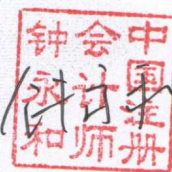 中国注册
会计师
钟永和